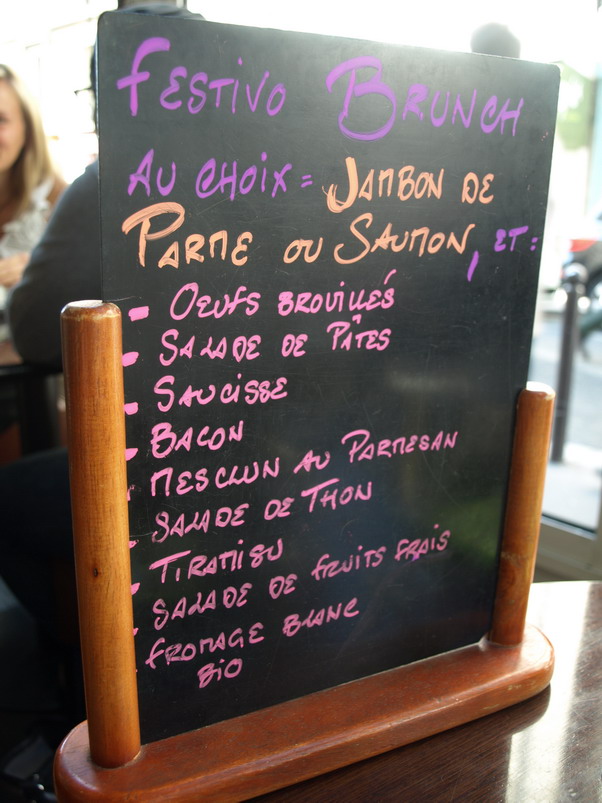 FESTIVO BRUNCH
AU CHOIX = JAMBON DE
PARME OU SAUMON, ET :
- OEUFS BROUILLÉS
- SALADE DE PÂTES
- SAUCISSE
- BACON
- MESCLUN AU PARMESAN
- SALADE DE THON
- TIRAMISU
- SALADE DE FRUITS FRAIS
- FROMAGE BLANC
BIO